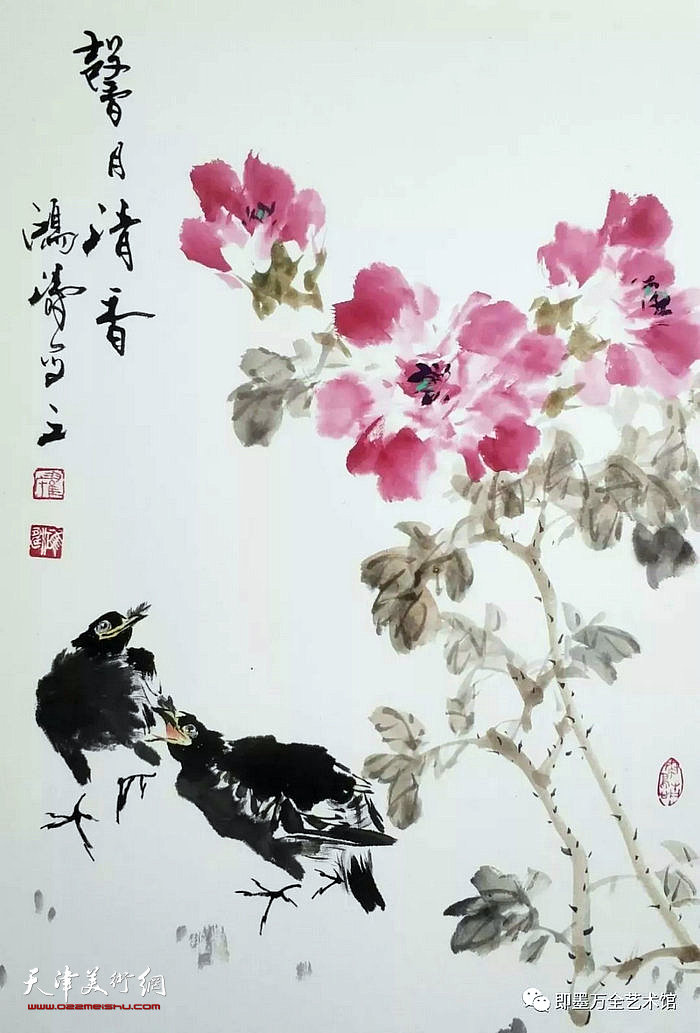 馨月清香
鸿涛写
天津美術網
www.022meishu.com
即墨万全艺术馆